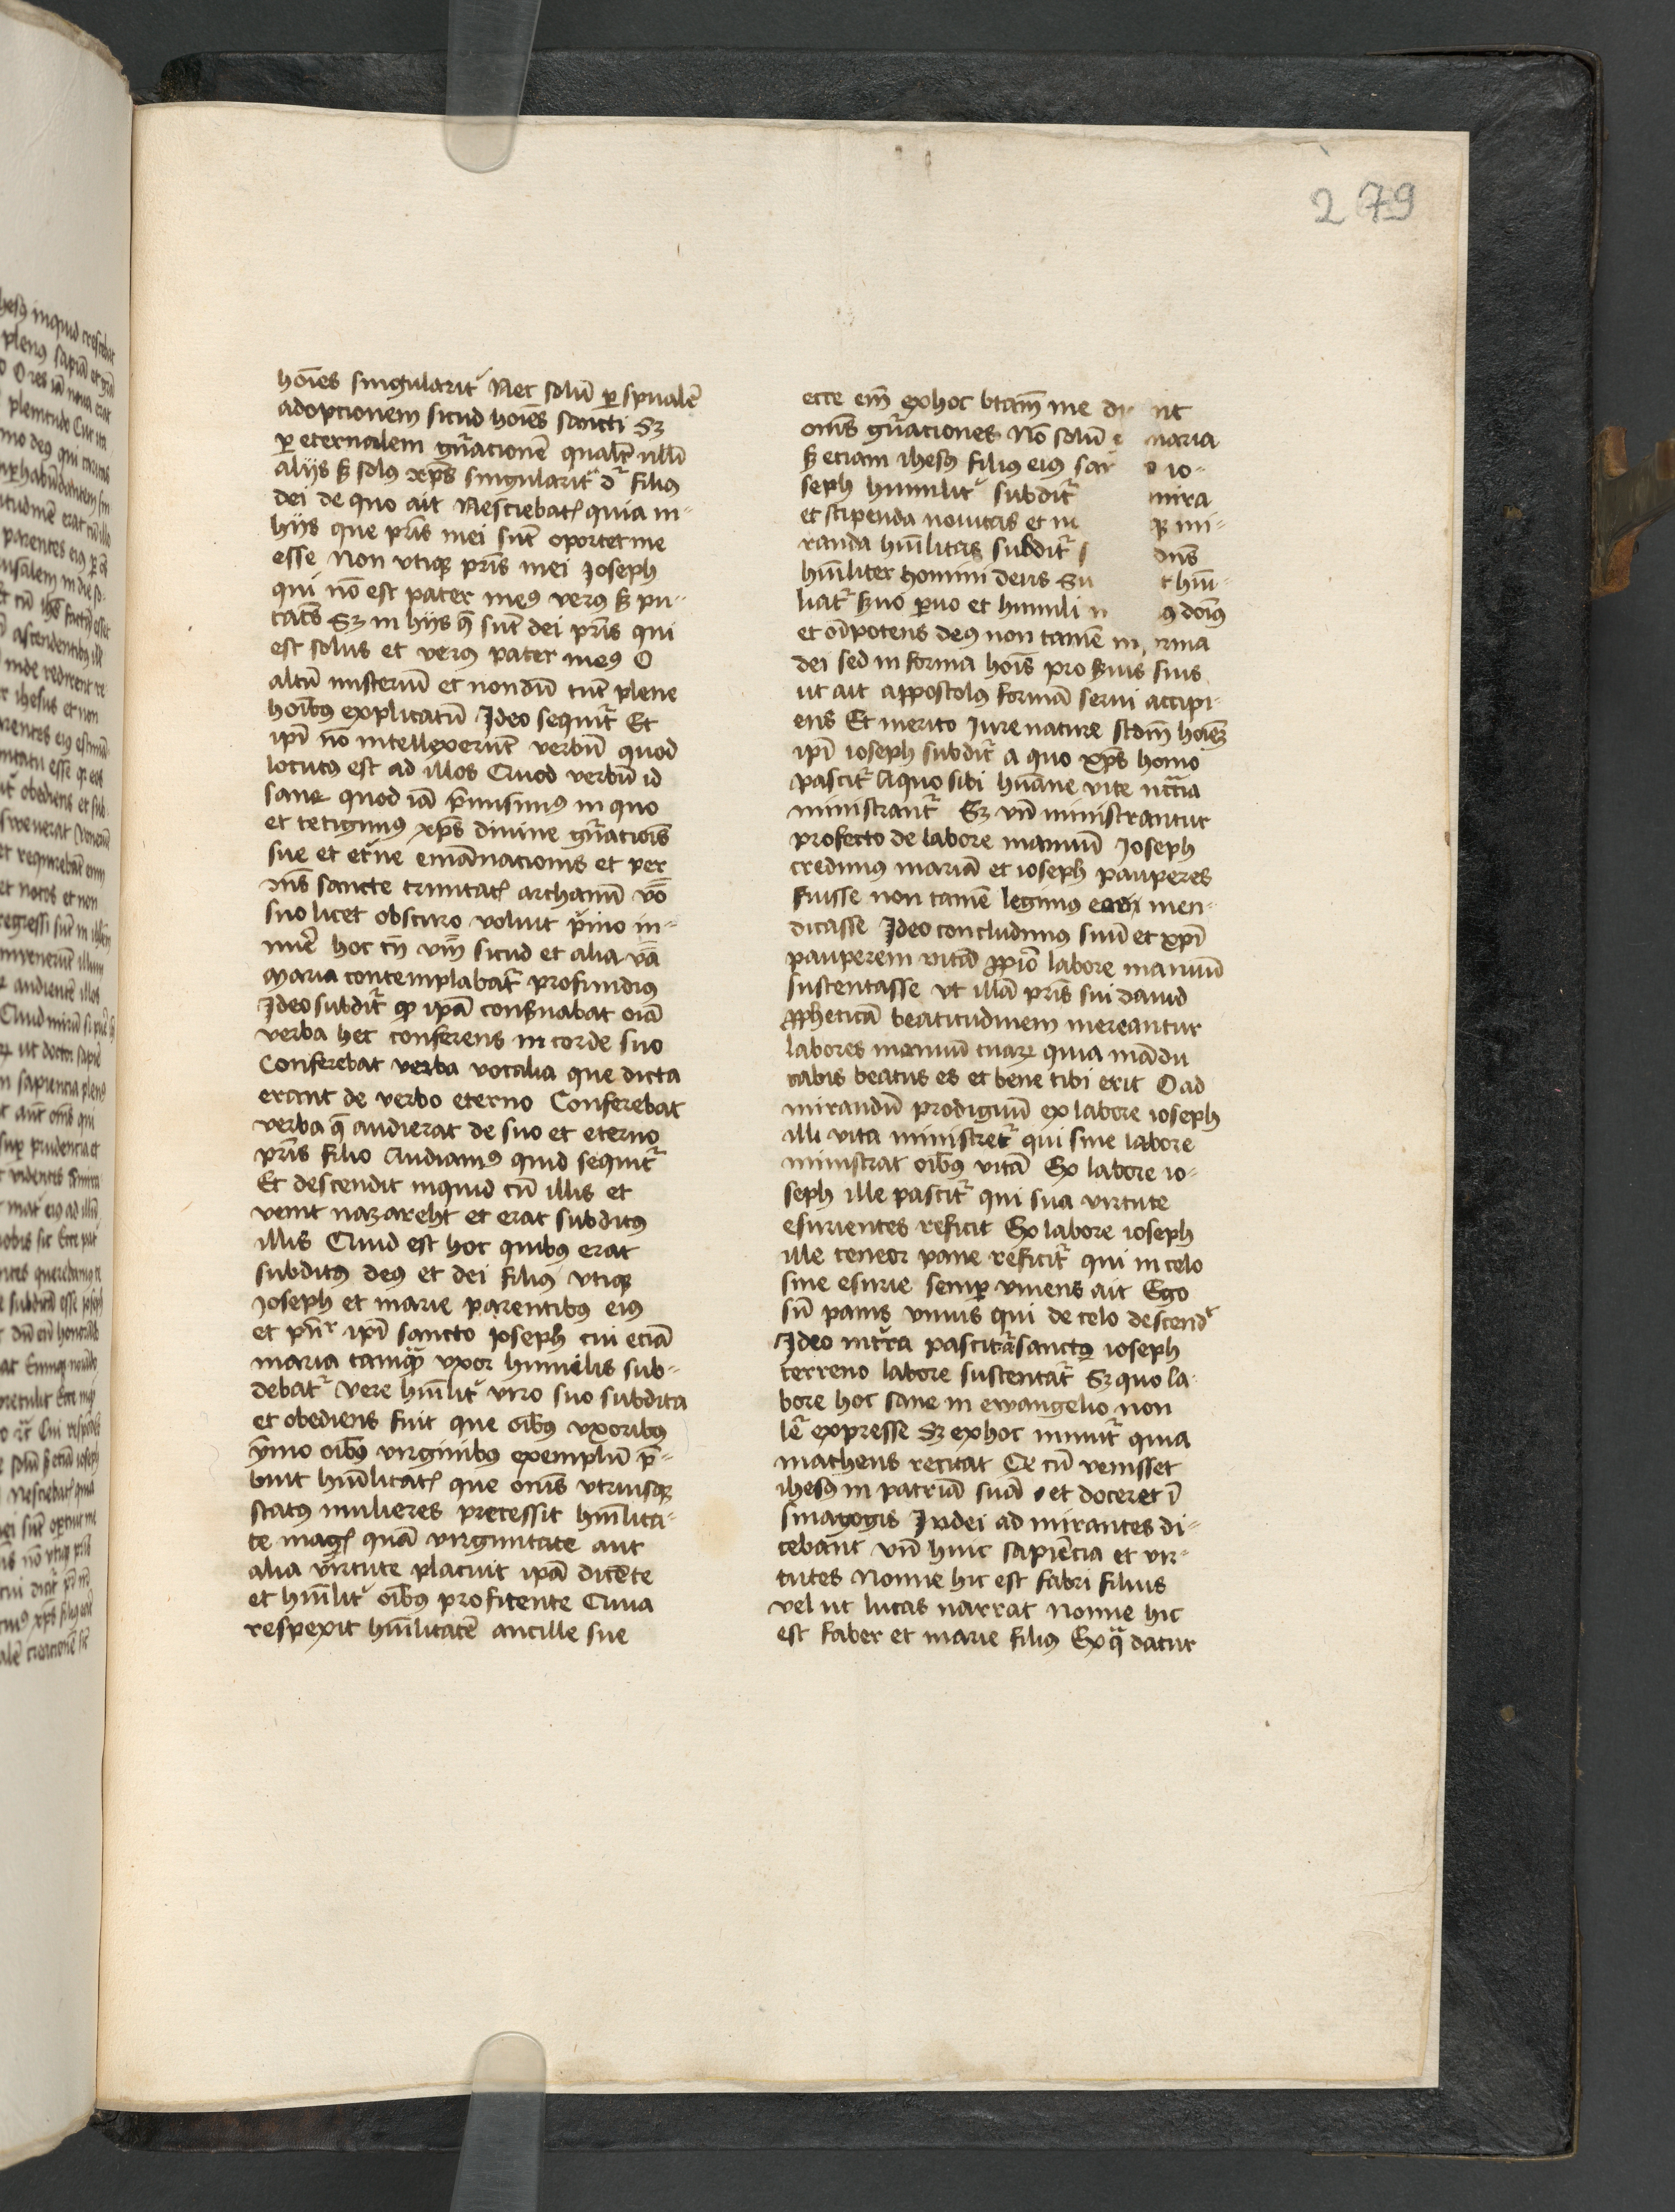 279
hoīes singularit᷑ Nec solū ꝑ spūalē
adopcionem sicud hoīes sancti Sꝫ
ꝑ eternalem gn̄acionē qualit᷑ nulli
alijs sꝫ solꝰ xp̄s singularit᷑ dr̄ filiꝰ
dei de quo ait Nesciebatꝭ quia in-
hijs que pr̄is mei sūt oportet me
esse Non vtiqꝫ pr̄is mei Joseph
qui nō est pater meꝰ verꝰ sꝫ pu-
tatꝰ Sꝫ in hijs q̄ sūt dei pr̄is qui
est solus et verꝰ pater meꝰ O
altū misteriū et nondū tūc plene
hoībꝰ explicatū Ideo sequit᷑ Et
ip̄i nō intellexerūt verbū quod
locutꝰ est ad illos Quod verbū id
sane quod iā p̄misimꝰ in quo
et tetigimꝰ xp̄s diuine gn̄acioīs
sue et et᷑ne emānacionis et per
om̄s sancte trinitatꝭ archanū vō
suo licet obscuro voluit p̄mo in-
nuē hoc tn̄ vm̄ sicud et alia v̄a
Maria contemplabat᷑ profundius
Ideo subdit᷑ ꝙ ipā conẜuabat oīa
verba hec conferens in corde suo
Conferebat verba vocalia que dicta
erant de verbo eterno Conferebat
verba q̄ audierat de suo et eterno
pr̄is filio Audiamꝰ quid sequit᷑
Et descendit inquid cū illis et
venit nazareht et erat subditꝰ
illis Quid est hoc quibꝰ erat
subditꝰ deꝰ et dei filiꝰ vtiqꝫ
Joseph et marie parentibꝰ eiꝰ
et pn̄r ip̄i sancto Joseph cui eciā
maria tamqꝫ vxor humilis sub-
debat᷑ Vere hūilit᷑ viro suo subdita
et obediens fuit que oībꝰ vxoribꝰ
ymo oībꝰ virginibꝰ exemplū p̄-
buit hūilitatꝭ que om̄s vtriusqꝫ
status mulieres precessit hūilita-
te magꝭ quā virginitate aut
alia virtute placuit ipā dicēte
et hūilit᷑ oībꝰ profitente Quia
respexit hūilitatē ancille sue
ecce em̄ ex hoc btām me di nt
om̄s gn̄aciones Nō solū maria
sꝫ eciam ihesꝰ filiꝰ eiꝰ sa o io-
seph humilit᷑ subdit᷑ mira
et stipenda nouitas et m qꝫ mi-
randa hūilitas subdit᷑ dn̄s
hūiliter homini deus Su t hūi-
liat᷑ ẜuo ꝑuo et humili ꝰ doīꝰ
et oīpotens deꝰ non tamē in rma
dei sed in forma hoīs pro ẜuis suis
ut ait appostolꝰ formā serui accipi-
ens Et merito Iure nature scdm̄ hoīeꝫ
ip̄i ioseph subdit᷑ a quo xp̄s homo
pascit᷑ A quo sibi hūane vite nccīa
ministrant᷑ Sꝫ vn̄ ministrantur
profecto de labore manuū Joseph
credimꝰ mariā et ioseph pauperes
fuisse non tamē legimꝰ men-
dicasse Ideo concludimꝰ suū et xp̄i
pauperem vitā ꝓpio labore manuū
sustentasse vt illā pr̄is sui dauid
ꝓpheticā beatitudinem mereantur
labores manuū tuaꝝ quia mādu
cabis beatus es et bene tibi erit O ad
mirandū prodigiuū ex labore ioseph
illi vita ministret᷑ qui sine labore
ministrat oībꝰ vitā Ex labore io-
seph ille pascit᷑ qui sua virtute
esurientes reficit Ex labore ioseph
ille teneor pane reficit᷑ qui in celo
sine esurie semꝑ viuens ait Ego
sū panis viuus qui de celo descend᷑
Ideo pascit᷑ sanctꝰ ioseph
terreno labore sustentat᷑ Sꝫ quo la-
bore hoc sane in ewangelio non
lē expresse Sꝫ ex hoc innuit᷑ quia
matheus recitat Et cū venisset
ihesꝰ in patriā suā et doceret ī
sinagogis Iudei ad mirantes di-
cebant vn̄ huic sapiēcia et vir-
tutes Nonne hic est fabri filius
vel ut lucas narrat Nonne hic
est faber et marie filiꝰ Ex qͣ datur